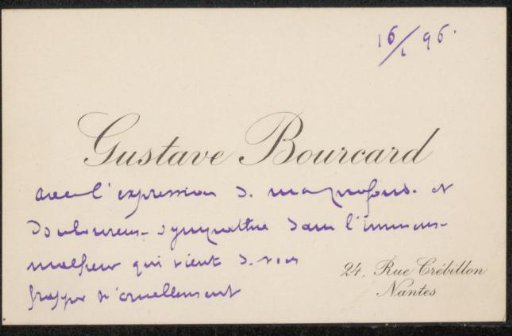 16/1 96.
Gustave Bourcard
avec l'expression de ma profonde et
douloureuse sympathie dans l'immense
malheur qui vient de vous
frapper si cruellement
24, Rue Crébillon
Nantes